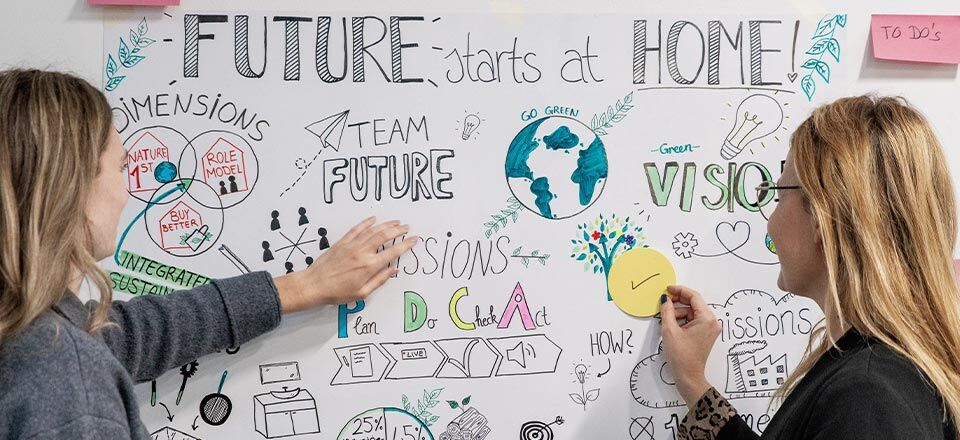 FUTURE starts at HOME!
TO DO'S
DIMENSIONS
NATURE
1ST
ROLE
MODEL
BUY
BETTER
TEAM
FUTURE
GO GREEN
Green
VISIO
INTEGRATED
MISSIONS
Plan Do Check Act
LIVE
HOW?
missions
25%